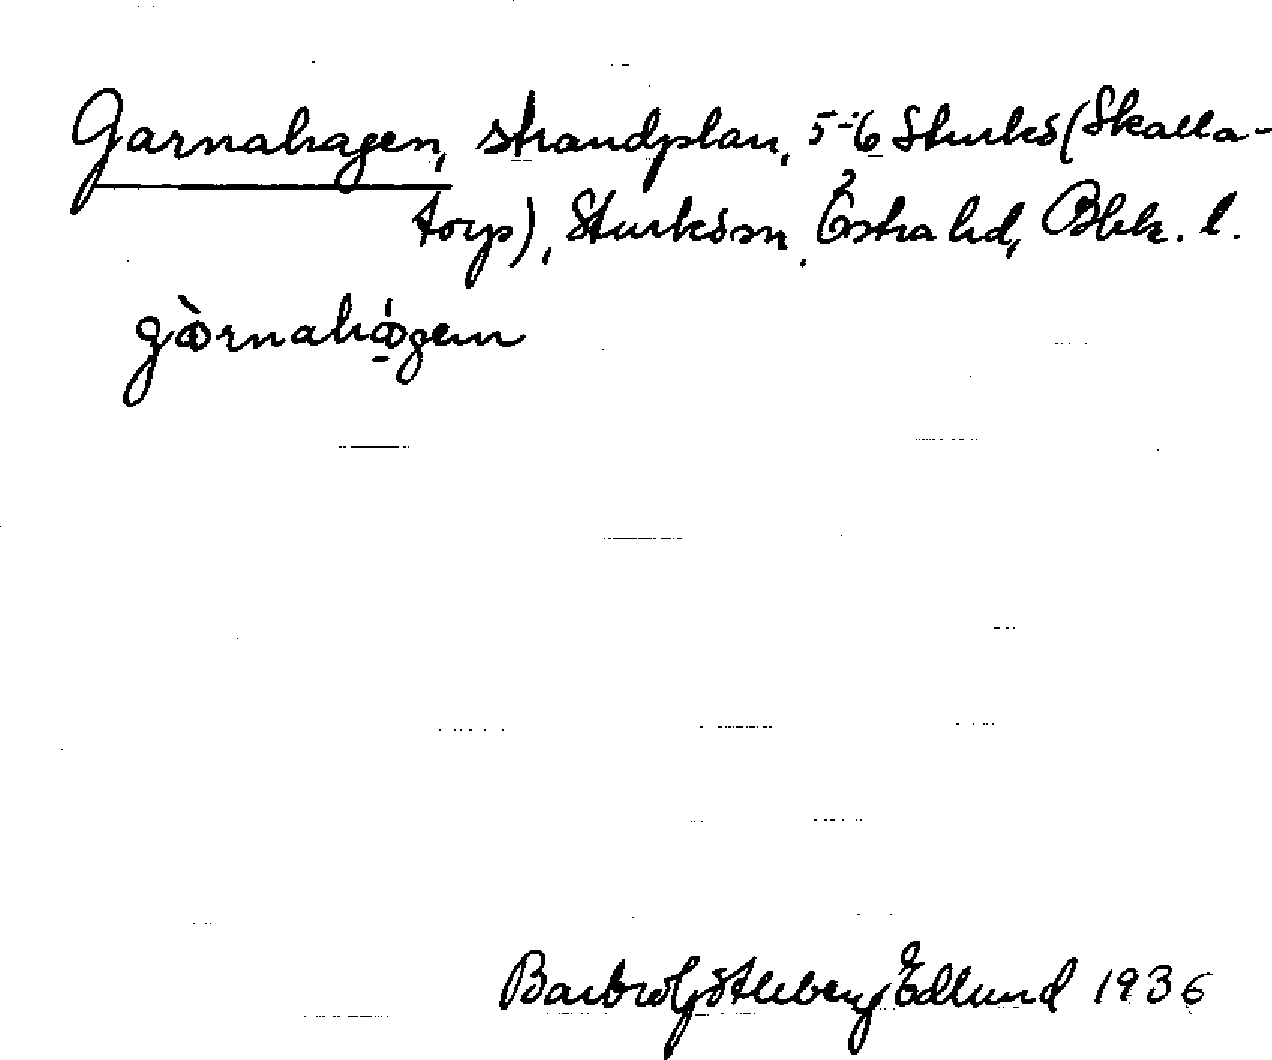 Garnahagen, strandplan, 5-6 Sturkö (Skalla-
torp), Sturkö sn, Östra hd, Blek. l.
gàrnahágen
Barbro Götleberg Edlund 1936